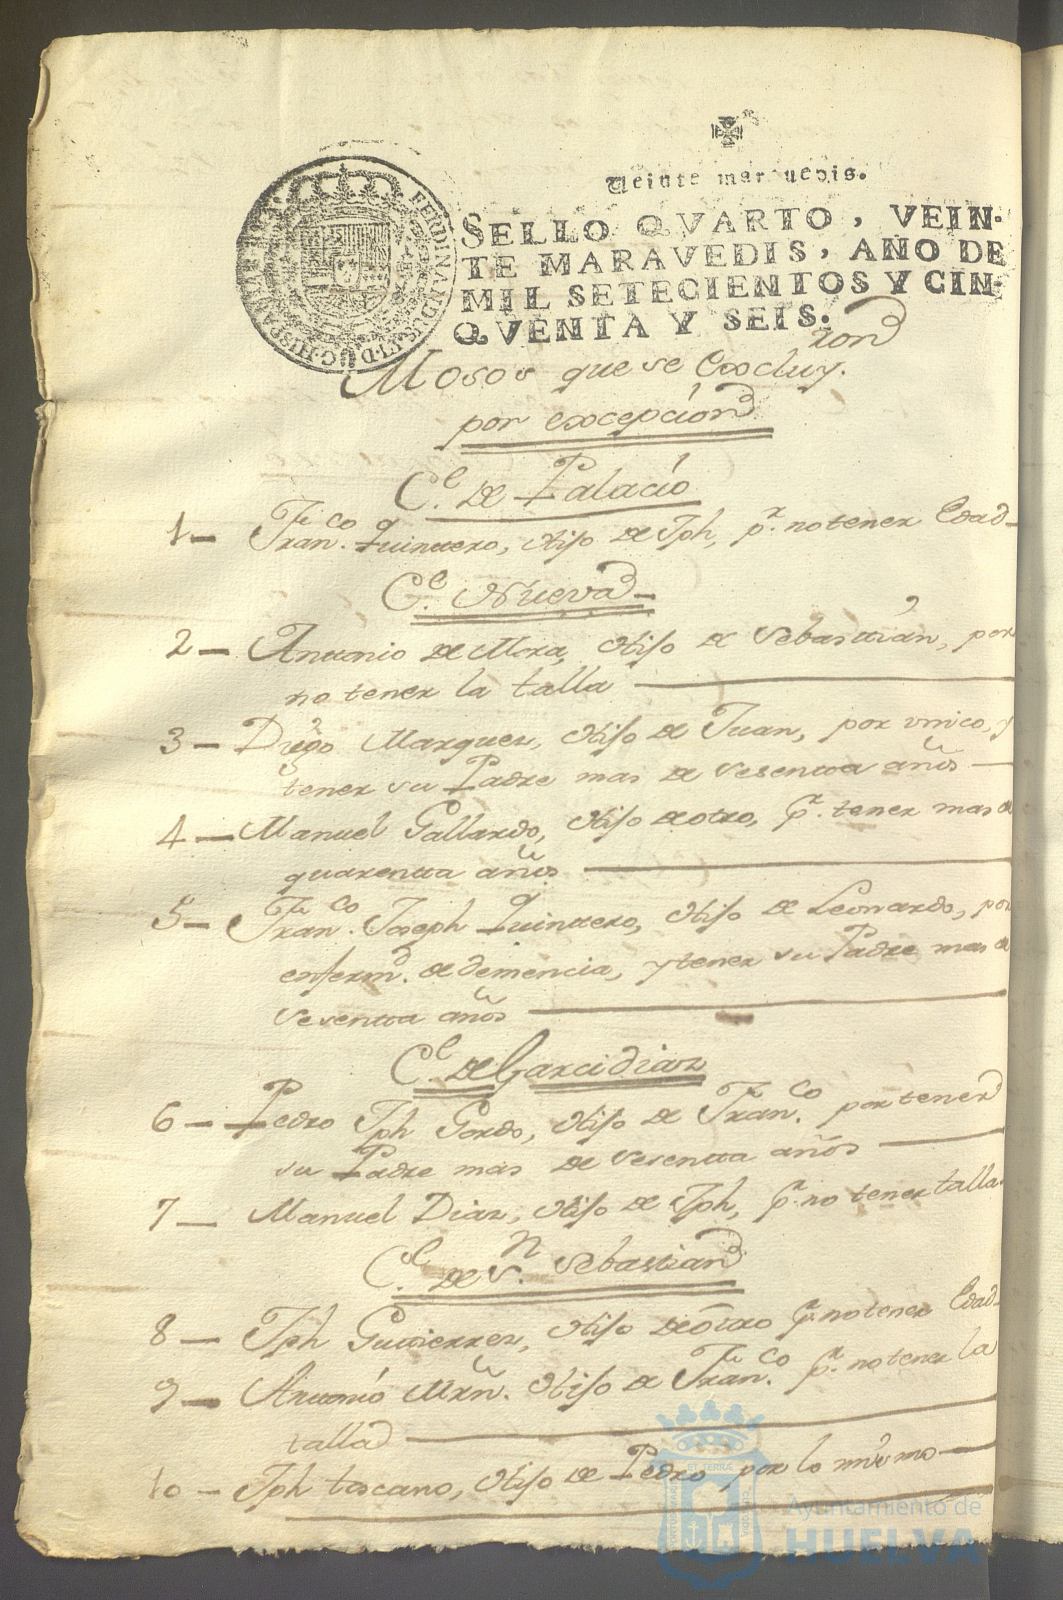 Veinte maravedis.
SELLO QVARTO, VEIN-
TE MARAVEDIS, AÑO DE
MIL SETECIENTOS Y CIN-
QVENTA Y SEIS.
Mosos que se Excluy.ron
por excepcion
C.e de Palacio
1- Fran.co Quintero, Hijo de Jph, p.r no tener Edad-
C.e Nueva-
2- Antonio de Mora, Hijo de Sebastian, por
no tener la talla
3- Diego Marquez, Hijo de Juan, por vnico, y
tener su Padre mas de sesenta años-
4- Manuel Gallardo, Hijo de otro, p.r tener mas de
quarenta años
5- Fran.co Joseph Quintero, Hijo de Leonardo, por
enferm.d de demencia, y tener su Padre mas de
sesenta años
C.e de Garcidiaz
6- Pedro Jph Gordo, Hijo de Fran.co por tener
su Padre mas de sesenta años
7- Manuel Diaz, Hijo de Jph, p.r no tener talla.
C.e de S.n Sebastian
8- Jph Gutierrez, Hijo de otro p.r no tener Edad-
9- Antonio Mrñ. Hijo de Fran.co p.r no tener la
talla
10- Jph toscano, Hijo de Pedro por lo mismo
Ayuntamiento de
HUELVA